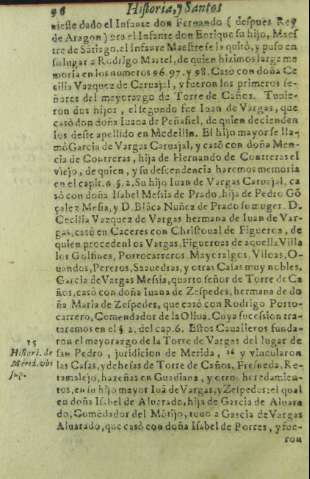 96 Historia, y Santos
uiesse dado el Infante don Fernando (despues Rey
de Aragon) era el Infante don Enrique su hijo, Maes
tre de Satiago, el Infante Maestre se la quitò, y puso en
su lugar a Rodrigo Martel, de quien hizimos larga me
moria en los numeros 96. 97. y 98. Casò con doña Ce
cilia Vazquez de Caruajal, y fueron los primeros se-
ñores del mayorazgo de Torre de Caños. Tuuie-
ron dos hijos, el segundo fue Iuan de Vargas, que
casò con doña Iuana de Peñafiel, de quien decienden
los deste apellido en Medellin. El hijo mayor se lla-
mò Garcia de Vargas Caruajal, y casò con doña Men-
cia de Contreras, hija de Hernando de Contreras el
viejo, de quien, y su descendencia haremos memoria
en el capit. 6 5. 2. Su hijo Iuan de Vargas Caruajal, ca
sò con doña Isabel Messia de Prado, hija de Pedro Gõ
çalez Messia, y D. Blãca Nuñez de Prado su muger. D.
Cecilia Vazquez de Vargas hermana de Iuan de Var-
gas, casò en Caceres con Christoual de Figueroa, de
quien proceden los Vargas, Figueroas de aquella Villa
los Golfines, Portocarreros, Mayoralgos, Vlloas, O-
uandos, Pereros, Saauedras, y otras Casas muy nobles.
Garcia de Vargas Messia, quarto señor de Torre de Ca
ños, casò con doña Iuana de Zespedes, hermana de do
ña Maria de Zespedes, que casò con Rodrigo Porto-
carrero, Comendador de la Oliua. Cuya sucession tra-
taremos en el § 2. del cap. 6. Estos Caualleros funda-
ron el mayorazgo de la Torre de Vargas del lugar de
15
Histori. de
Merid. vbi
sup.
san Pedro, juridicion de Merida, 26 y vincularon
las Casas, y dehesas de Torre de Caños, Fresneda, Re-
tamalejo, hazeñas en Guadiana, y otros heredamien-
tos, en su hijo mayor Iuã de Vargas, y Zespedes: el qual
en doña Isabel de Aluarado, hija de Garcia de Aluara
do, Comedador del Mõtijo, tuuo a Garcia de Vargas
Aluarado, que casò con doña Isabel de Porres, y fue-
ron